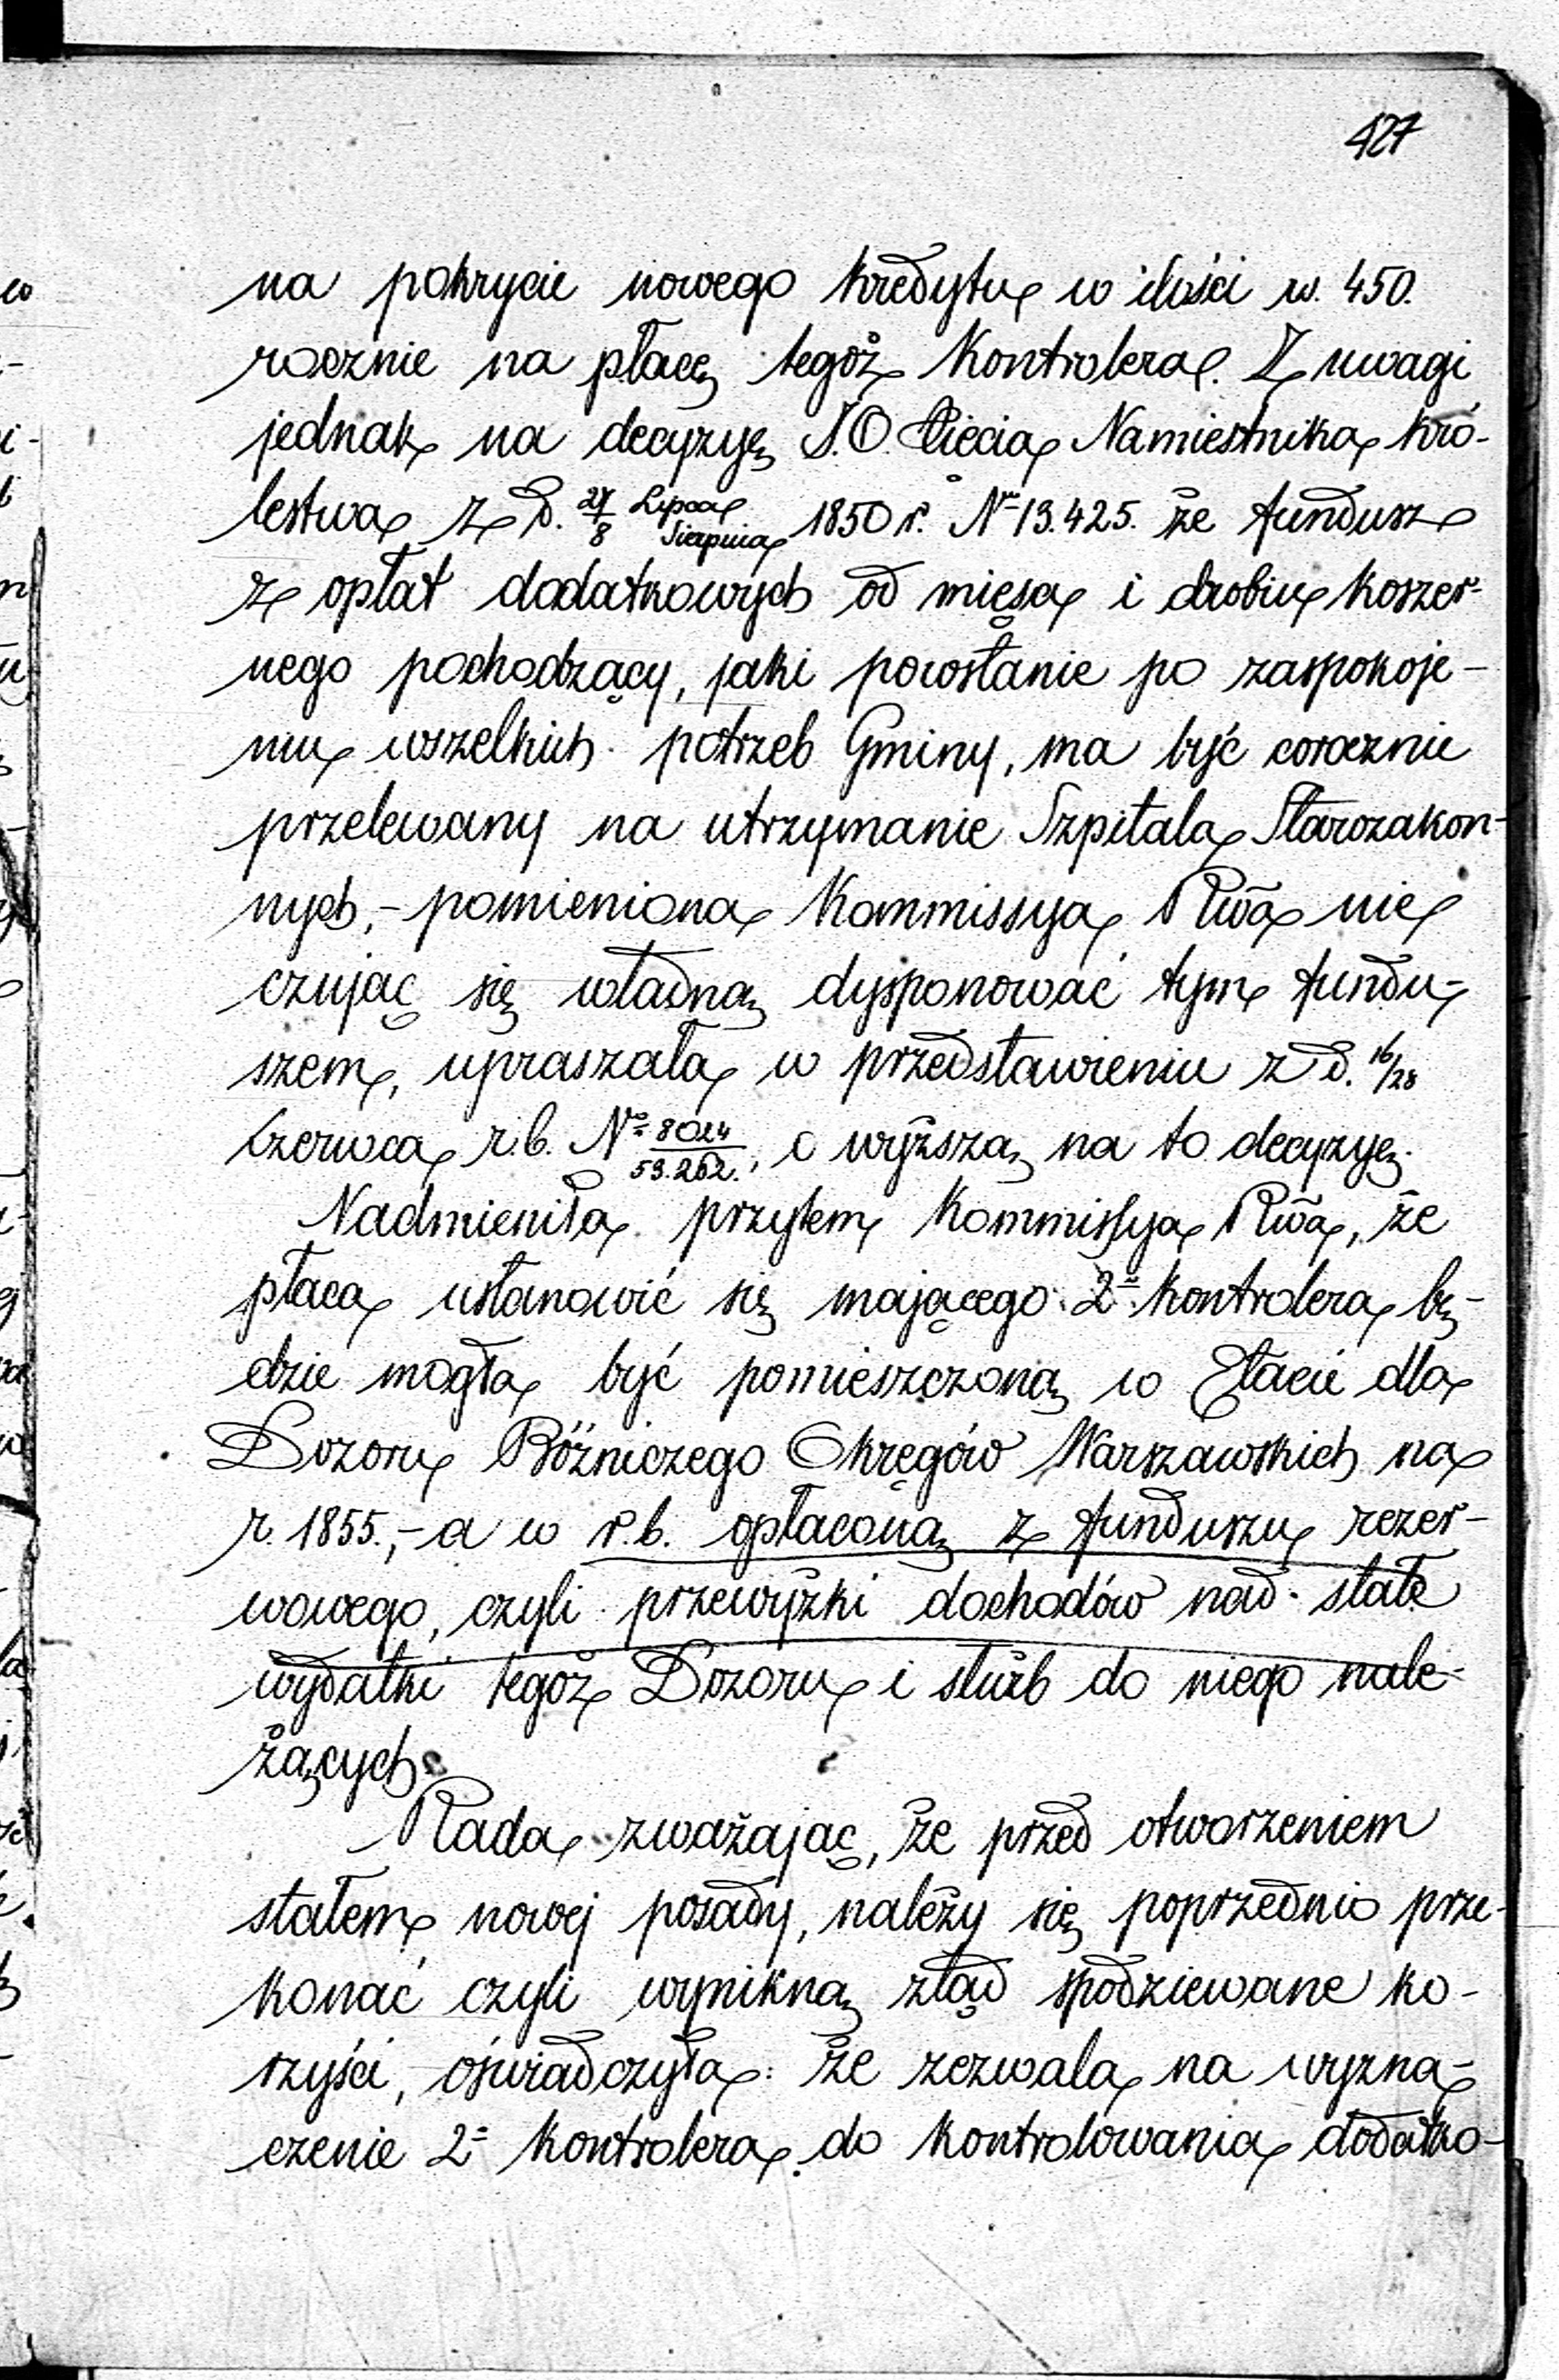 427
na pokrycie nowego kredytu w ilości rs. 450.
rocznie na płacę tegoż Kontrolera. Z uwagi
jednak na decyzyę J.O. Xięcia Namiestnika Kró-
lestwa z d. 27/8 Lipca/Sierpnia 1850 r. Nr 13.425. że fundusz
z opłat dodatkowych od mięsa i drobiu koszer-
nego pochodzący, jaki pozostanie po zaspokoje-
niu wszelkich potrzeb Gminy, ma być corocznie
przelewany na utrzymanie Szpitala Starozakon-
nych, - pomieniona Kommissya Rwa nie
czując się władną dysponować tym fundu-
szem, upraszała w przedstawieniu z d. 16/28
Czerwca r.b. No 8024/53.262., o wyższą na to decyzyę.
Nadmieniła przytem Kommissya Rwa, że
płaca ustanowić się mającego 2o Kontrolera bę-
dzie mogła być pomieszczoną w Etacie dla
Dozoru Bóżniczego Okręgów Warszawskich na
r. 1855., - a w r.b. opłaconą z funduszu rezer-
wowego, czyli przewyżki dochodów nad stałe
wydatki tegoż Dozoru i służb do niego nale-
żących.
Rada zważając, że przed otworzeniem
stałem nowej posady, należy się poprzednio prze-
konać czyli wynikną ztąd spodziewane ko-
rzyści, oświadczyła: że zezwala na wyzna-
czenie 2o Kontrolera do kontrolowania dodatko-